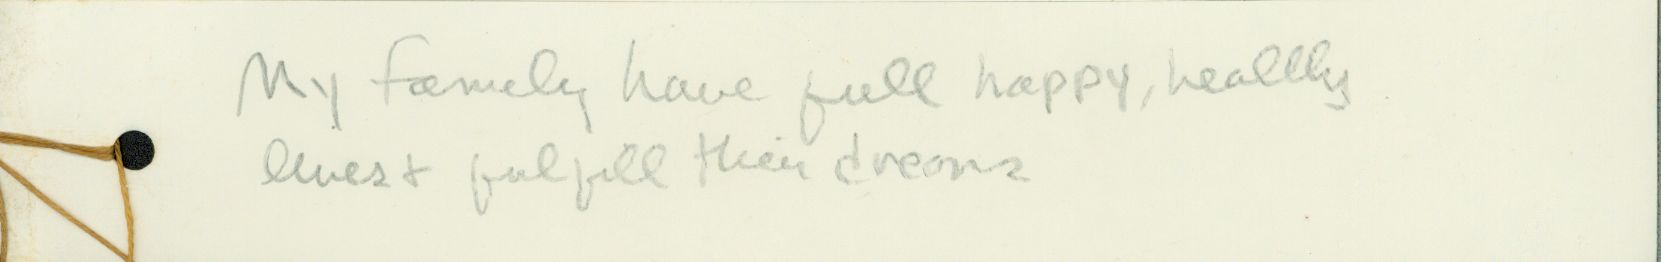 My family have full happy, healthy
lives & fulfill their dreams